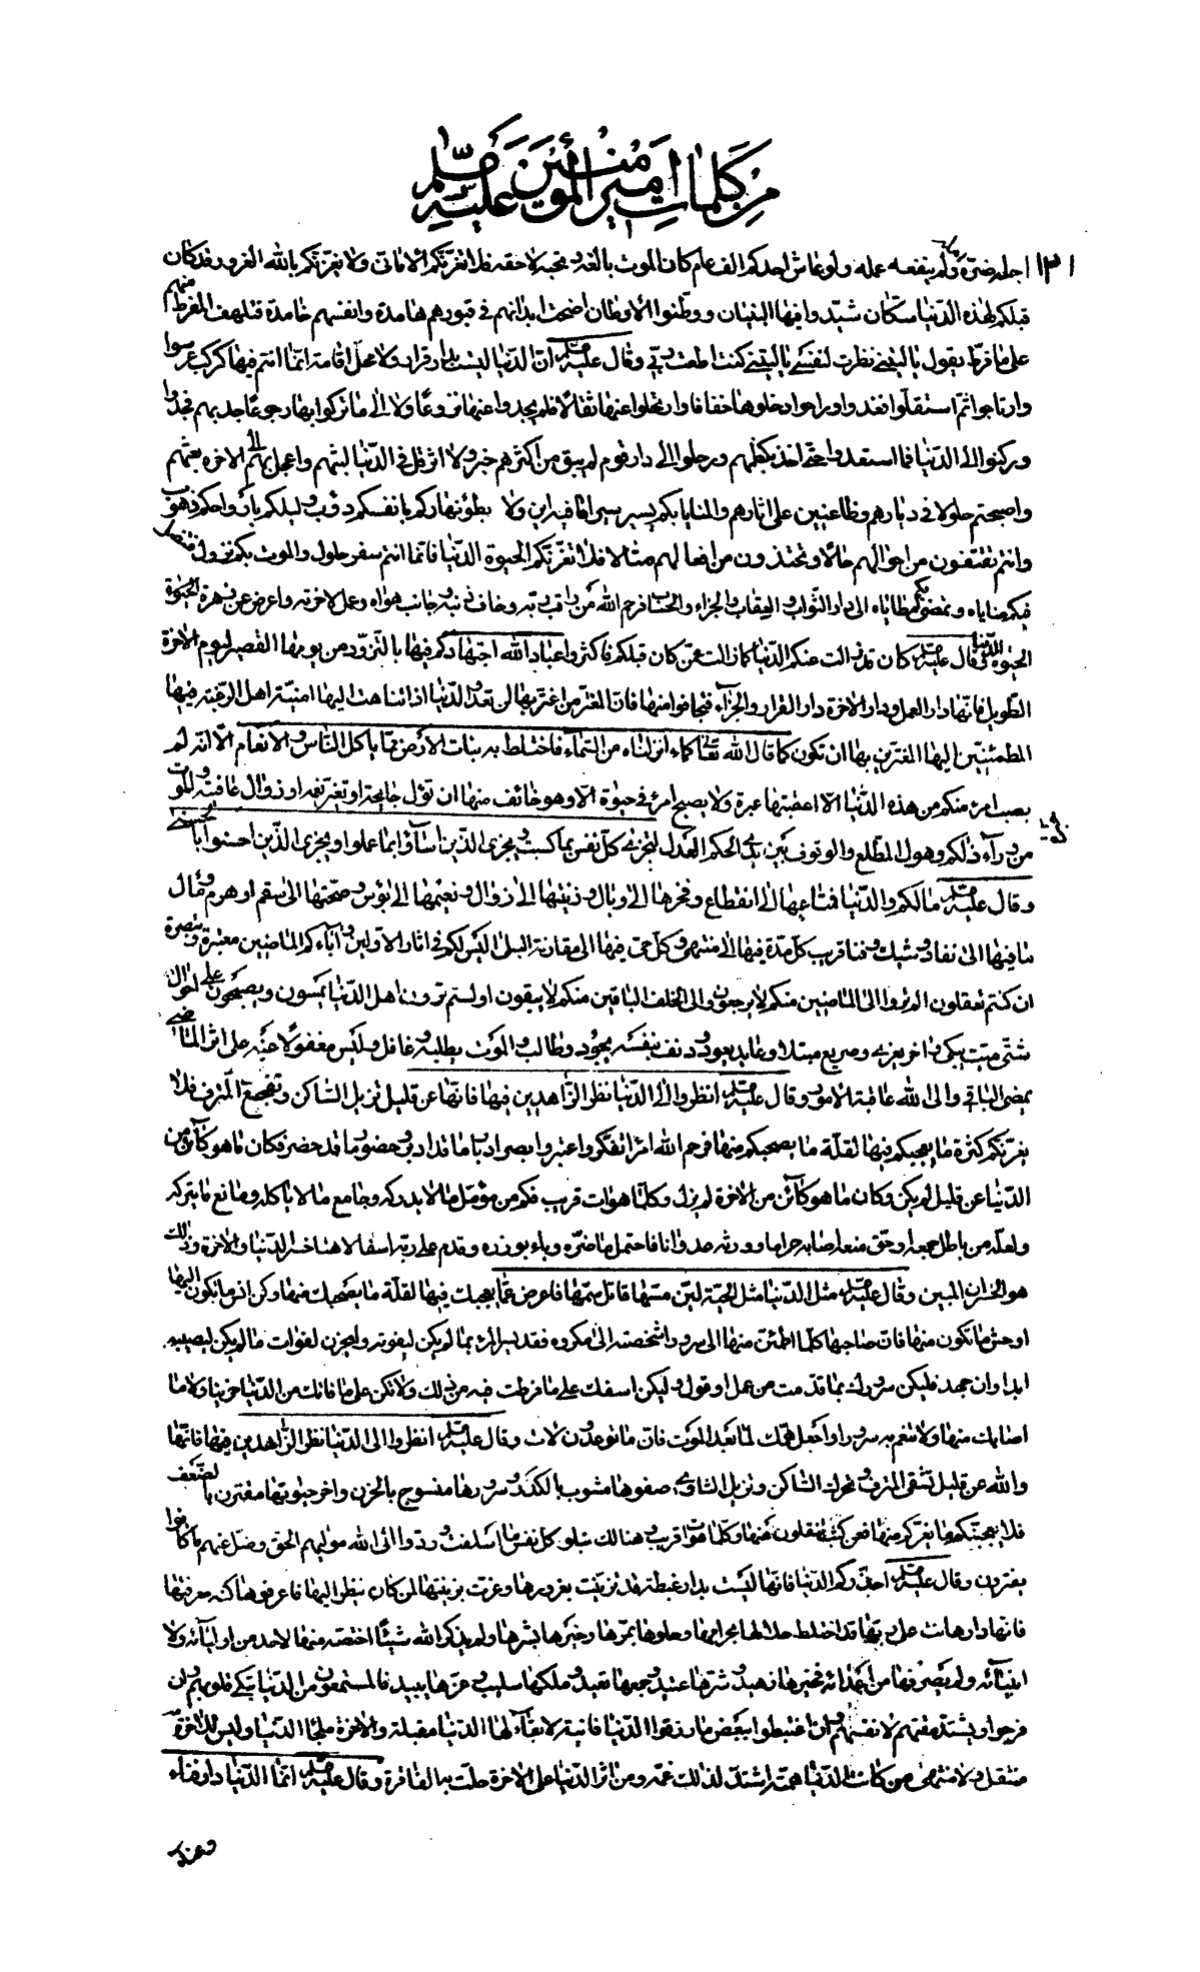 من كلمات أمير المؤمنين صلى عليه
١٣١ اجله ضرّه ولم ينفعه عمله ولو عاش احدكم الف عام كان الموت بالغه و نحبه لاحقه فلا تغرّنّكم الامانى ولا يغرّنّكم بالله الغرور وقد كان
قبلكم لهذه الدّنيا سكّان شيّدوا فيها البنيان ووطّنوا الاوطان اضحت ابدانهم فى قبورهم هامدة وانفسهم خامدة فتلهف المفرط منهم
على ما فرط يقول يا ليتنى نظرت لنفسى يا ليتنى كنت اطعت ربّى وقال عليه انّ الدّنيا ليست بدار قرار ولا محلّ اقامة انّما انتم فيها كركب عرسوا
وارتاحوا ثمّ استقلّوا فغدوا وراحوا دخلوها خفافا وارتحلوا عنها ثقالا فلم يجدوا عنها نزوعا ولا الى ما تركوا بها رجوعا جد بهم فجدوا
وركنوا الى الدّنيا فما استعدوا حتى اخذ بكظمهم ورحلوا الى دار قوم لم يبق من اكثرهم خبر ولا اثر قل فى الدّنيا لبثهم واعجل بهم الى الاخرة بعثهم
واصبحتم حلولا فى ديارهم وظاعنين على اثارهم والمنايا بكم تسير سيرا ما فيه اين ولا بطؤ نهاركم بانفسكم دؤب وليلكم بارواحكم ذهوب
وانتم تقتفون من احوالهم حالا وتحتذون من افعالهم مثالا فلا تغرّنّكم الحيوة الدّنيا فانّما انتم سفر حلول والموت بكم نزول تنتضل
فيكم مناياه وتمضى بكم مطاياه الى دار الثّواب والعقاب والجزاء والحساب فرحم الله من راقب ربّه وخاف ذنبه وجانب هواه وعمل لاخرته واعرض عن زهرة الحيوة
الدّنيا وقال عليه كان قد زالت عنكم الدّنيا كما زالت عمّن كان قبلكم فاكثروا عباد الله اجتهادكم فيها بالتّزوّد من يومها القصير ليوم الاخرة
الطّويل فانّها دار العمل ودار الاخرة دار القرار والجزآء فتجافوا عنها فانّ المغترّ من اغترّ بها لن تعدو الدّنيا اذا تناهت اليها امنيّة اهل الرّغبة فيها
المطمئنّين اليها المغترّين بها ان تكون كما قال الله تعالى كماء انزلناه من السّماء فاختلط به نبات الارض ممّا ياكل النّاس والانعام الا انّه لم
يصب امرء منكم من هذه الدّنيا الّا اعقبتها عبرة ولا يصبح امرء فى حيوة الا وهو خائف منها ان تؤل جايحة او تغير نعمه او زوال عافية والموت
من ورآء ذلكم وهول المطّلع والوقوف بين يدى الحكم العدل لتجزى كلّ نفس بما كسبت ويجزى الّذين اسآؤا بما عملوا ويجزى الّذين احسنوا بالحسنى
وقال عليه ما لكم والدّنيا فمتاعها الى انقطاع وفخرها الى وبال وزينتها الى زوال ونعيمها الى بؤس وصحّتها الى سقم او هرم ومآل
ما فيها الى نفاد وشيك وفنا قريب كلّ مدّة فيها الى منتهى وكلّ حىّ فيها الى مقارنة البلى اليس لكم فى اثار الاولين وآبآءكم الماضين معتبر وتبصرة
ان كنتم تعقلون الم تروا الى الماضين منكم لا يرجعون والى الخلف الباقين منكم لا يبقون او لستم ترون اهل الدّنيا يمسون ويصبحون على احوال
شتّى ميّت يبكى واخر يعزى وصريع مبتلا وعايد يعود ودنف بنفسه يجود وطالب والموت يطلبه وغافل وليس مغفولا عنه على اثر الماضى
يمضى الباقى والى الله عاقبة الامور وقال عليه انظروا الى الدّنيا نظر الزّاهدين فيها فانّها عن قليل تزيل السّاكن وتفجع المترف فلا
يغرّنّكم كثرة ما يعجبكم فيها لقلّة ما يصحبكم منها فرحم الله امرأ تفكّر واعتبر وابصر ادبار ما قد ادبر وحضور ما قد حضر فكان ما هو كآئن من
الدّنيا عن قليل لم يكن وكان ما هو كآئن من الاخرة لم يزل وكلّ ما هو ات قريب فكم من مؤمّل ما لا يدركه وجامع ما لا ياكله ومانع ما يتركه
ولعلّه من باطل جمعه او حق منعه اصابه حراما وورثه عدوانا فاحتمل ما ضرّه وباء بوزره وقدم على ربّه اسفا لاهفا خسر الدّنيا والاخرة وذلك
هو الخسران المبين وقال عليه مثل الدّنيا مثل الحيّة ليّن مسّها قاتل سمّها فاعرض عمّا يعجبك فيها لقلّة ما يصحبك منها وكن انس ما تكون اليها
اوحش ما تكون منها فانّ صاحبها كلّما اطمئنّ منها الى سرور اشخصته الى مكروه فقد يسر المرء بما لم يكن ليفوته وليحزن لفوات ما لم يكن ليصيبه
ابدا وان جهد فليكن سرورك بما قدّمت من عمل او قول وليكن اسفك على ما فرطت فيه من ذلك ولا تكن على ما فاتك من الدّنيا حزينا ولا ما
اصابك منها ولا تنعم به سرورا واجعل همّك لما بعد الموت فانّ ما توعدون لات وقال عليه انظروا الى الدّنيا نظر الزّاهدين فيها فانّها
والله عن قليل تشقى المترف وتحرك السّاكن وتزيل الثّاوى صفوها مشوب بالكدر وسرورها منسوج بالحزن واخر حيوتها مقترن بالضّعف
فلا يعجبنّكم ما يغرّكم منها فعن كثب تنقلون عنها وكلّ ما هو ات قريب وهنالك تبلو كلّ نفس ما اسلفت وردّوا الى الله موليهم الحق وضلّ عنهم ما كانوا
يفترون وقال عليه احذّركم الدّنيا فانّها ليست بدار غبطة قد تزيّنت بغرورها وغرت بزينتها لمن كان ينظر اليها فاعرفوها كنه معرفتها
فانّها دار هانت على ربّها قد اختلط حلالها بحرامها وحلوها بمرّها وخيرها بشرّها ولم يذكر الله شيئًا اختصّه منها لاحد من اوليآئه ولا
انبيآئه ولم يصرفها من اعدآئه فخيرها زهيد وشرّها عتيد وجمعها ينفد وملكها يسلب وعزّها يبيد فالمتمتّعون من الدّنيا تبكى قلوبهم وان
فرحوا ويشتدّ مقتهم لانفسهم وان اغتبطوا ببعض ما رزقوا الدّنيا فانية لا بقآء لها الدّنيا مقبلة والاخرة ملجأ الدّنيا وليس للاخرة
منتقل ولا منتهى من كانت الدّنيا همّه اشتدّ لذلك غمّه ومن اثر الدّنيا على الاخرة حلّت به الفاقرة وقال عليه انّما الدّنيا دار فناء
وعناء